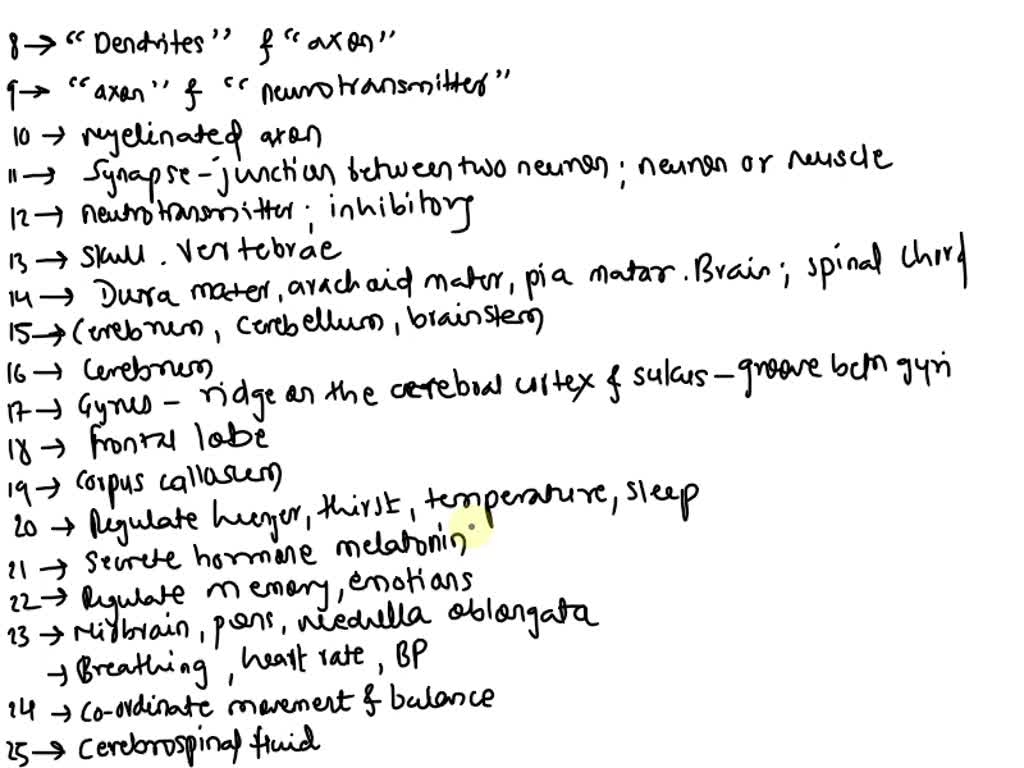 8→ "Dendrites" & "axon"
9→ "axon" & "neurotransmitter"
10→ myelinated axon
11→ Synapse - junction between two neuron; neuron or muscle
12→ neurotransmitter; inhibitory
13→ skull. vertebrae
14→ Dura mater, arachoid mater, pia matar. Brain; spinal chord
15→ Cerebrum, cerebellum, brainstem
16→ Cerebrum
17→ Gyrus - ridge on the cerebral cortex & sulcus - groove betn gyri
18→ frontal lobe
19→ Corpus callosum
20→ Regulate hunger, thirst, temperature, sleep
21→ Secrete hormone melatonin
22→ Regulate memory, emotions
23→ Midbrain, pons, medulla oblongata
→ Breathing, heart rate, BP
24→ Co-ordinate movement & balance
25→ Cerebrospinal fluid